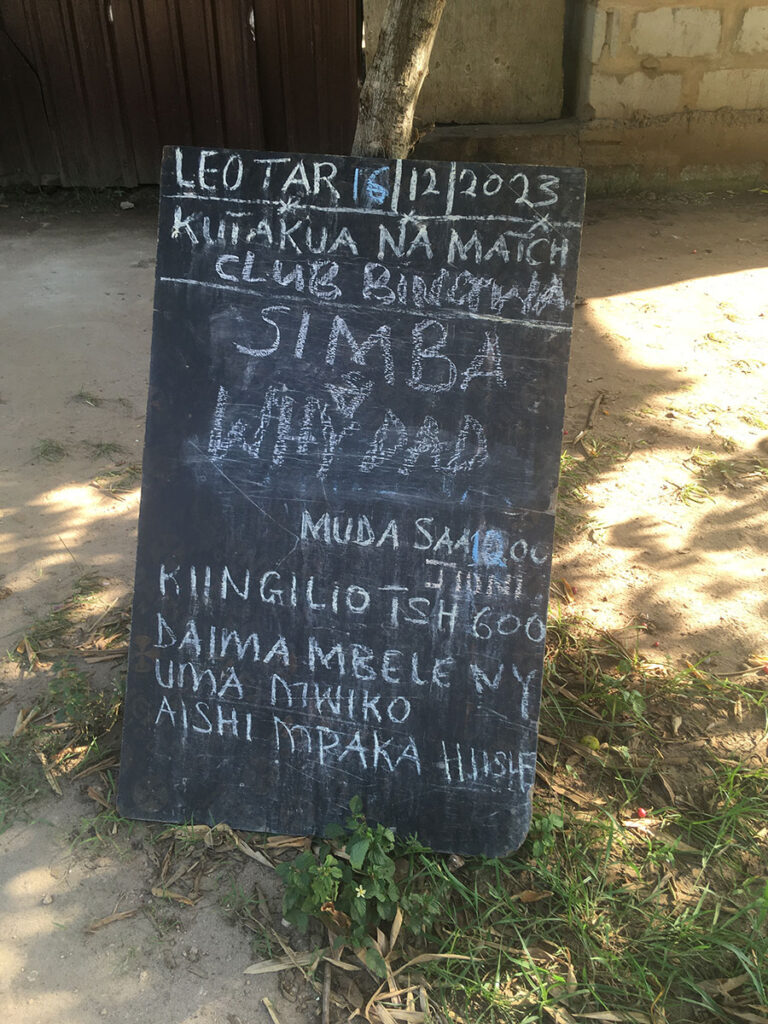 LEO TAR 16/12/2023
KUTAKUA NA MATCH
CLUB BINGWA
SIMBA
V
WHYDAD
MUDA SAA 10:00
JIONI
KIINGILIO TSH 600
DAIMA MBELE NY
UMA MWIKO
AISHI MPAKA